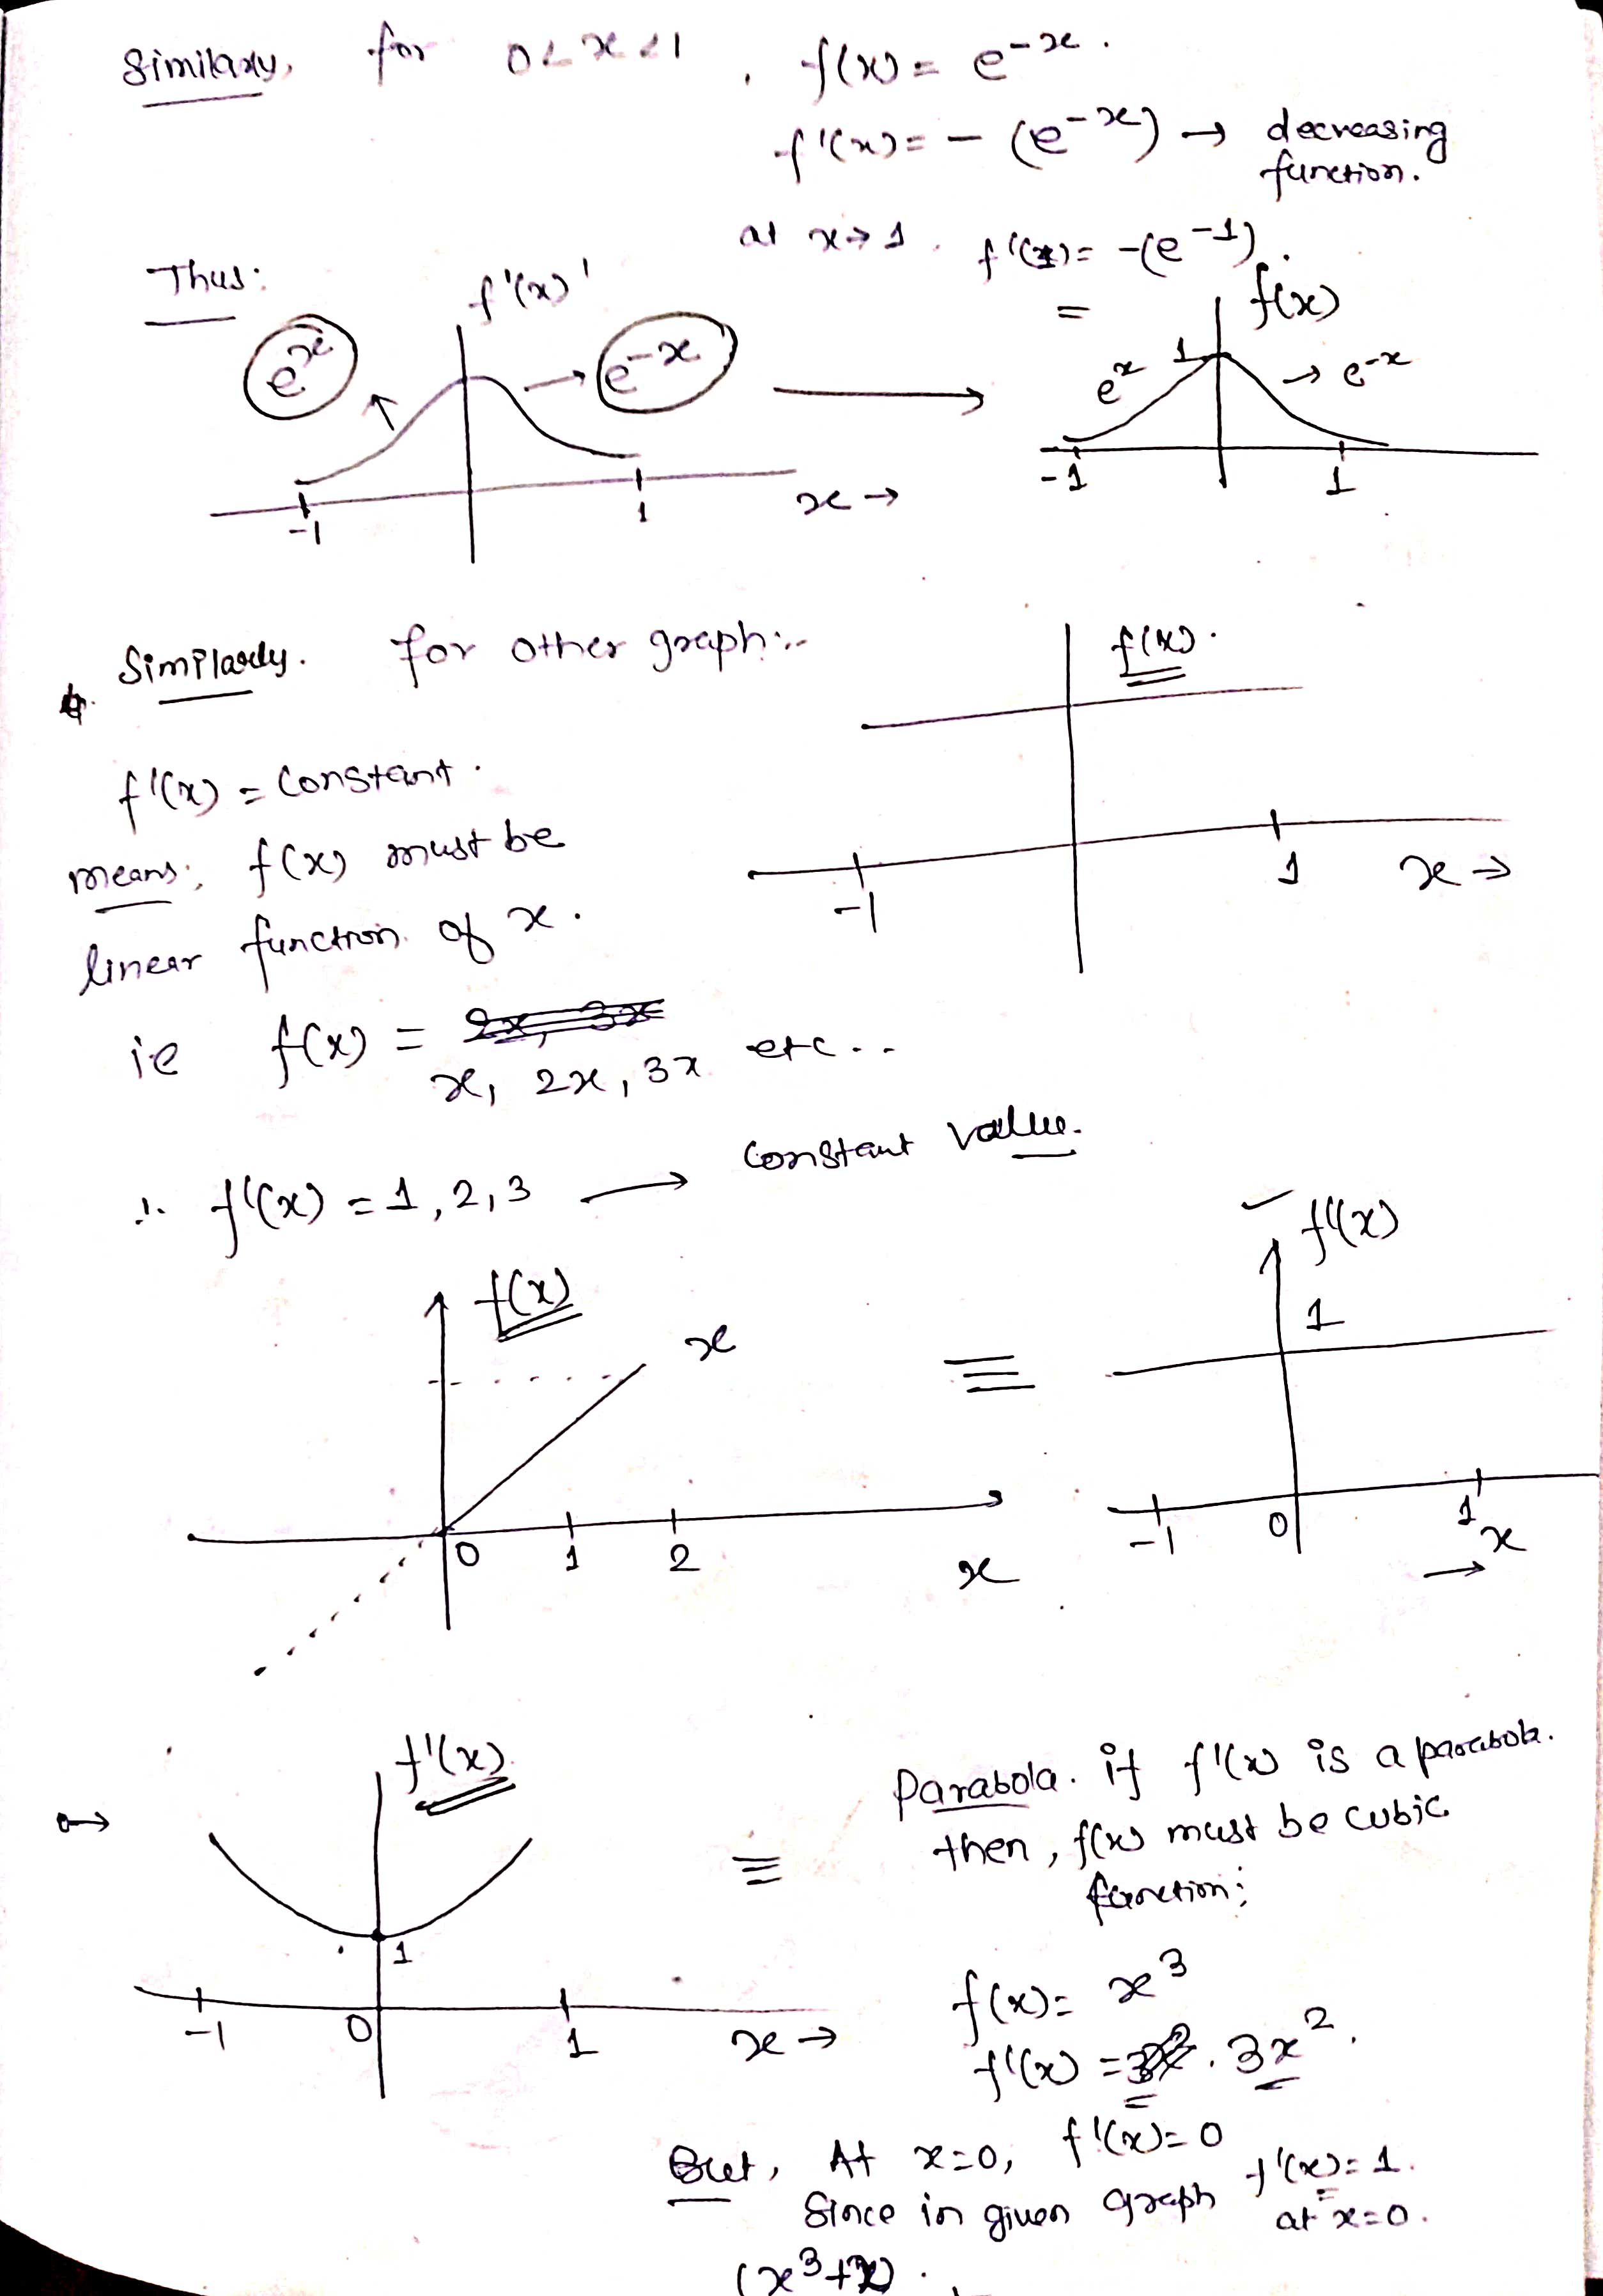 Similarly, for 0<x<1, f(x) = e^-x.
f'(x) = - (e^-x) → decreasing
function.
at x→1. f'(1) = -(e^-1).
Thus:
f'(x)'
=
f(x)
e^x
→ e^-x
→
e^x
1
→ e^-x
-1
1
x →
-1
1
Similarly. for other graph:-
f(x).
f'(x) = Constant.
means, f(x) must be
linear function of x.
-1
1
x →
ie f(x) = 2x, 3x
x, 2x, 3x etc..
∴ f'(x) = 1, 2, 3 → Constant value.
f(x)
x
≡
f'(x)
1
0
1
2
x
-1
0
1
x
→
→
f'(x)
≡
Parabola. if f'(x) is a parabola.
then, f(x) must be cubic
function;
1
-1
0
1
x →
f(x) = x^3
f'(x) = 3x^2. 3x^2.
But, At x=0, f'(x)=0
Since in given graph f'(x)=1.
at x=0.
(x^3+x).